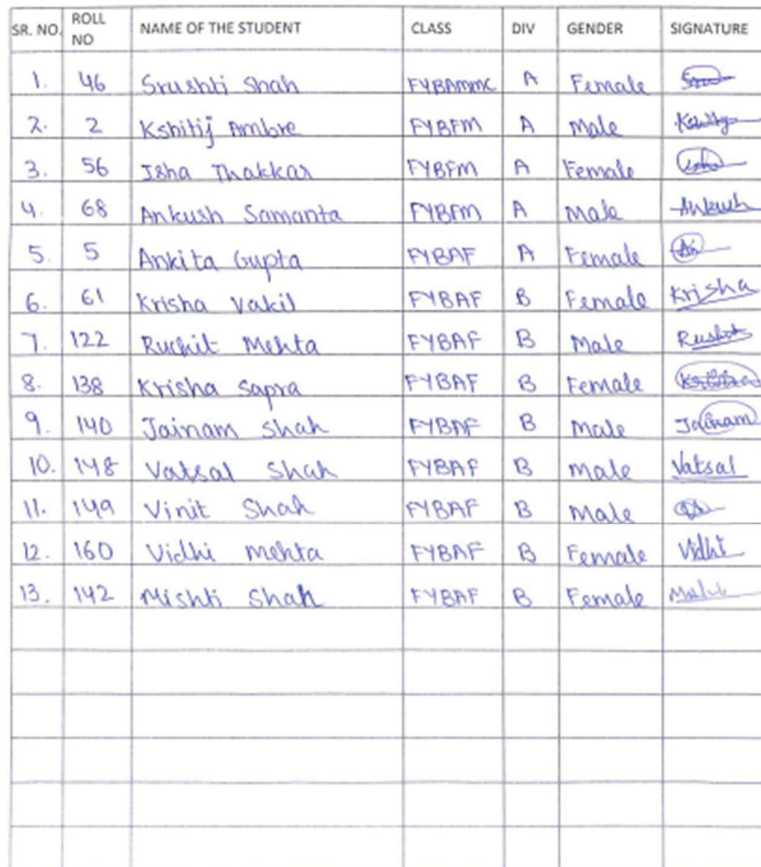 SR. NO. ROLL NO NAME OF THE STUDENT CLASS DIV GENDER SIGNATURE
1. 46 Srushti Shah FYBAMMC A Female
2. 2 Kshitij Ambre FYBFM A Male
3. 56 Isha Thakkar FYBFM A Female
4. 68 Ankush Samanta FYBFM A Male Ankush
5. 5 Ankita Gupta FYBAF A Female
6. 61 Krisha Vakil FYBAF B Female Krisha
7. 122 Ruchit Mehta FYBAF B Male
8. 138 Krisha Sapra FYBAF B Female
9. 140 Jainam Shah FYBAF B Male Jainam
10. 148 Vatsal Shah FYBAF B Male Vatsal
11. 149 Vinit Shah FYBAF B Male
12. 160 Vidhi Mehta FYBAF B Female Vidhi
13. 142 Mishti Shah FYBAF B Female